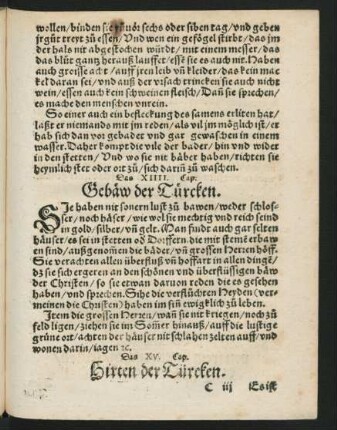 wollen/binden sie zuuor sechs oder siben tag/vnd geben
jr grün treyt zů essen/Vnd wen ein gefögel stirbt/das jm
der hals nit abgestochen würdt/mit einem messer/das
das blůt gantz herauß lauffet/esse sie es auch nit. Haben
auch grosse acht/auff jren leib vñ kleider/das kein mac
kel daran sei/vnd auß der vrsach trincken sie auch nicht
wein/essen auch kein schweinen fleisch/Dañ sie sprechen/
es mache den menschen vnrein.
So einer auch ein befleckung des samens erliten hat/
laßt er niemands mit jm reden/als vil jm möglich ist/er
hab sich dan vor gebadet vnd gar gewaschen in einem
wasser. Daher kompt die vile der bäder/hin vnd wider
in den stetten/Vnd wo sie nit bäder haben/richten sie
heymlich ster oder ort zů/sich dariñ zů waschen.
Das XIIII. Cap.
Gebäw der Türcken.
SJe haben nit sonern lust zů bawen/weder schlos-
ser/noch häser/wie wol sie mechtig vnd reich seind
in gold/silber/vñ gelt. Man findt auch gar selten
häuser/es sei in stetten oď Dorffern die mit steinē erbaw
en sind/außgenomen die bäder/vñ grossen Herren höff.
Sie verachten allen überfluß vñ hoffart in allen dingē/
dz sie sich ergeren an den schönen vnd überflüssigen bäw
der Christen/so sie etwan daruon reden die es gesehen
haben/vnd sprechen. Sihe die verflüchten Heyden (ver-
meinen die Christen) haben im siñ ewigklich zů leben.
Jtem die grossen Herren/wañ sie nit kriegen/noch zů
feld ligen/ziehen sie im Som̃er hinauß/auff die lustige
grüne ort/achten der häuser nit schlahen zelten auff/vnd
wonen darin/iagen ꝛc.
Das XV. Cap.
Hirten der Türcken.
C iij Es ist